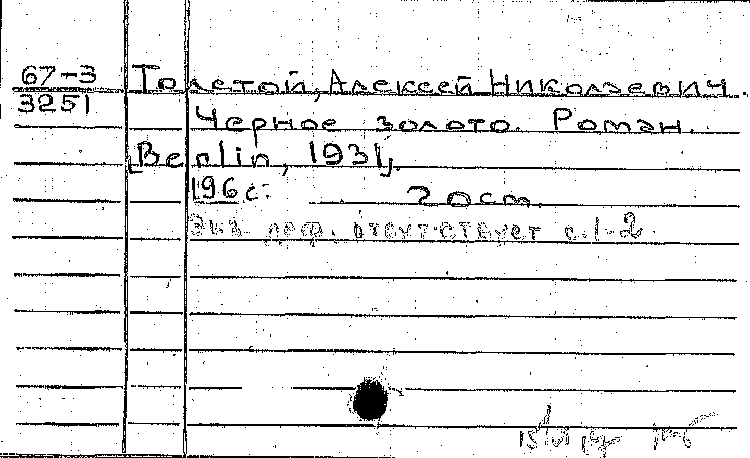 67-3
3251
Толстой, Алексей Николаевич.
Черное золото. Роман.
[Berlin, 1931].
196 с. 20 cm.
Экз. деф. отсутствует с. 1-2.